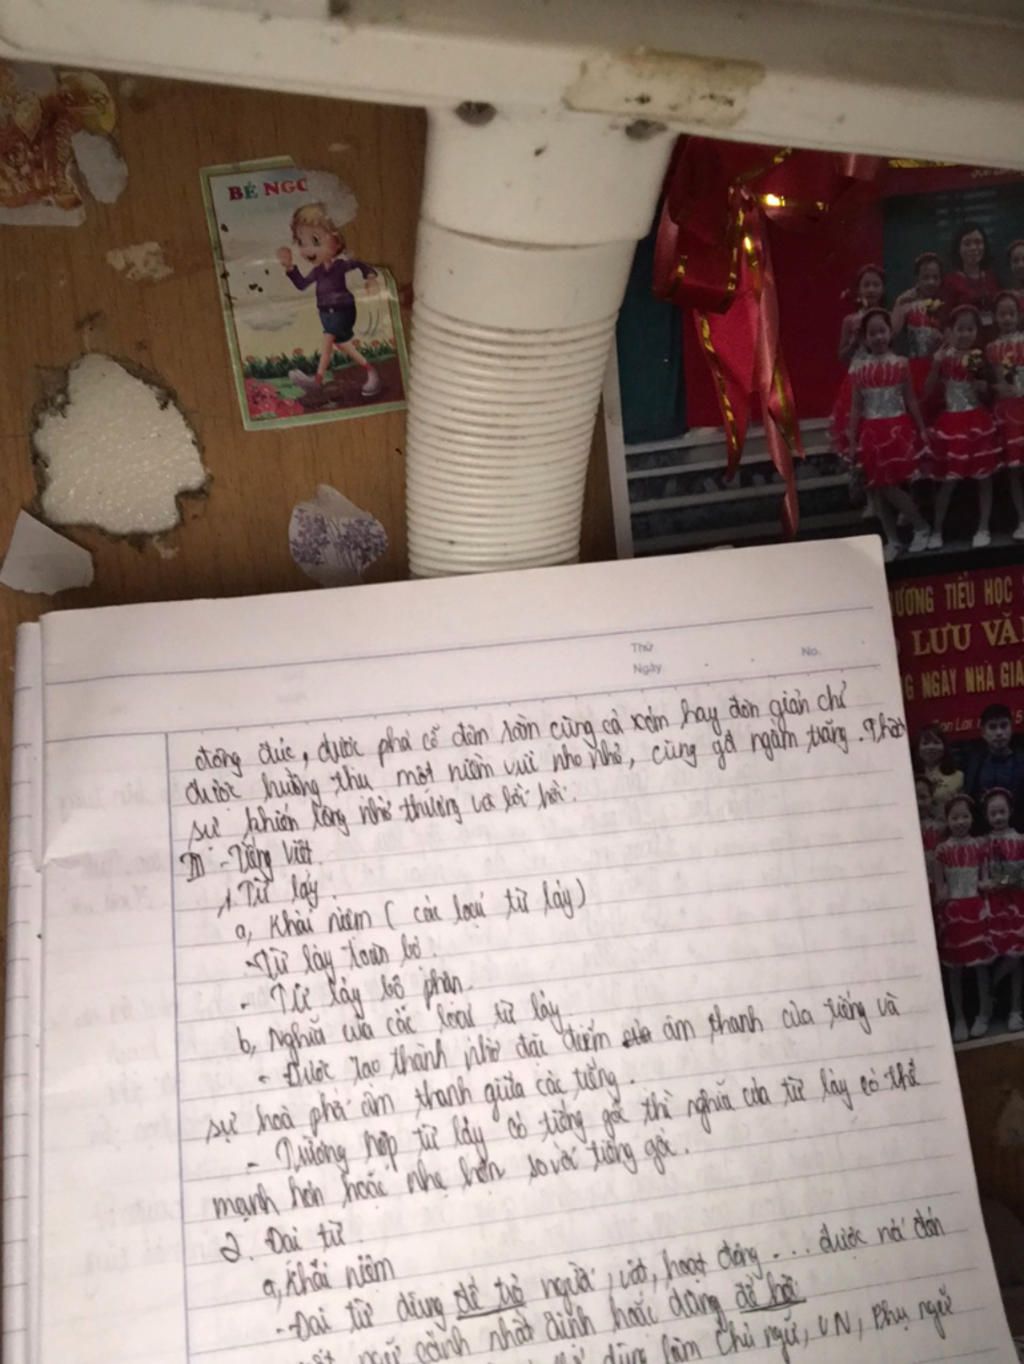 BÉ NGC
ƯƠNG TIỂU HỌC
LƯU VĂ
NGÀY NHÀ GIÁ
Thứ
Ngày
No.
đông đúc, được phá cỗ đêm rằm cùng cả xóm hay đơn giản chỉ
được hưởng thụ một niềm vui nho nhỏ, cùng gđ ngắm trăng. Thật
sự khiến lòng nhớ thương và bồi hồi.
III - Tiếng Việt.
1. Từ láy.
a, Khái niệm (các loại từ láy)
- Từ láy toàn bộ.
- Từ láy bộ phận.
b, Nghĩa của các loại từ láy.
- Được tạo thành nhờ đặc điểm âm thanh của tiếng và
sự hoà phối âm thanh giữa các tiếng.
- Trường hợp từ láy có tiếng gốc thì nghĩa của từ láy có thể
mạnh hơn hoặc nhẹ hơn so với tiếng gốc.
2. Đại từ.
a, Khái niệm
- Đại từ dùng để trỏ người, vật, hoạt động... được nói đến
ngữ cảnh nhất định hoặc dùng để hỏi
dùng làm chủ ngữ, VN, Phụ ngữ